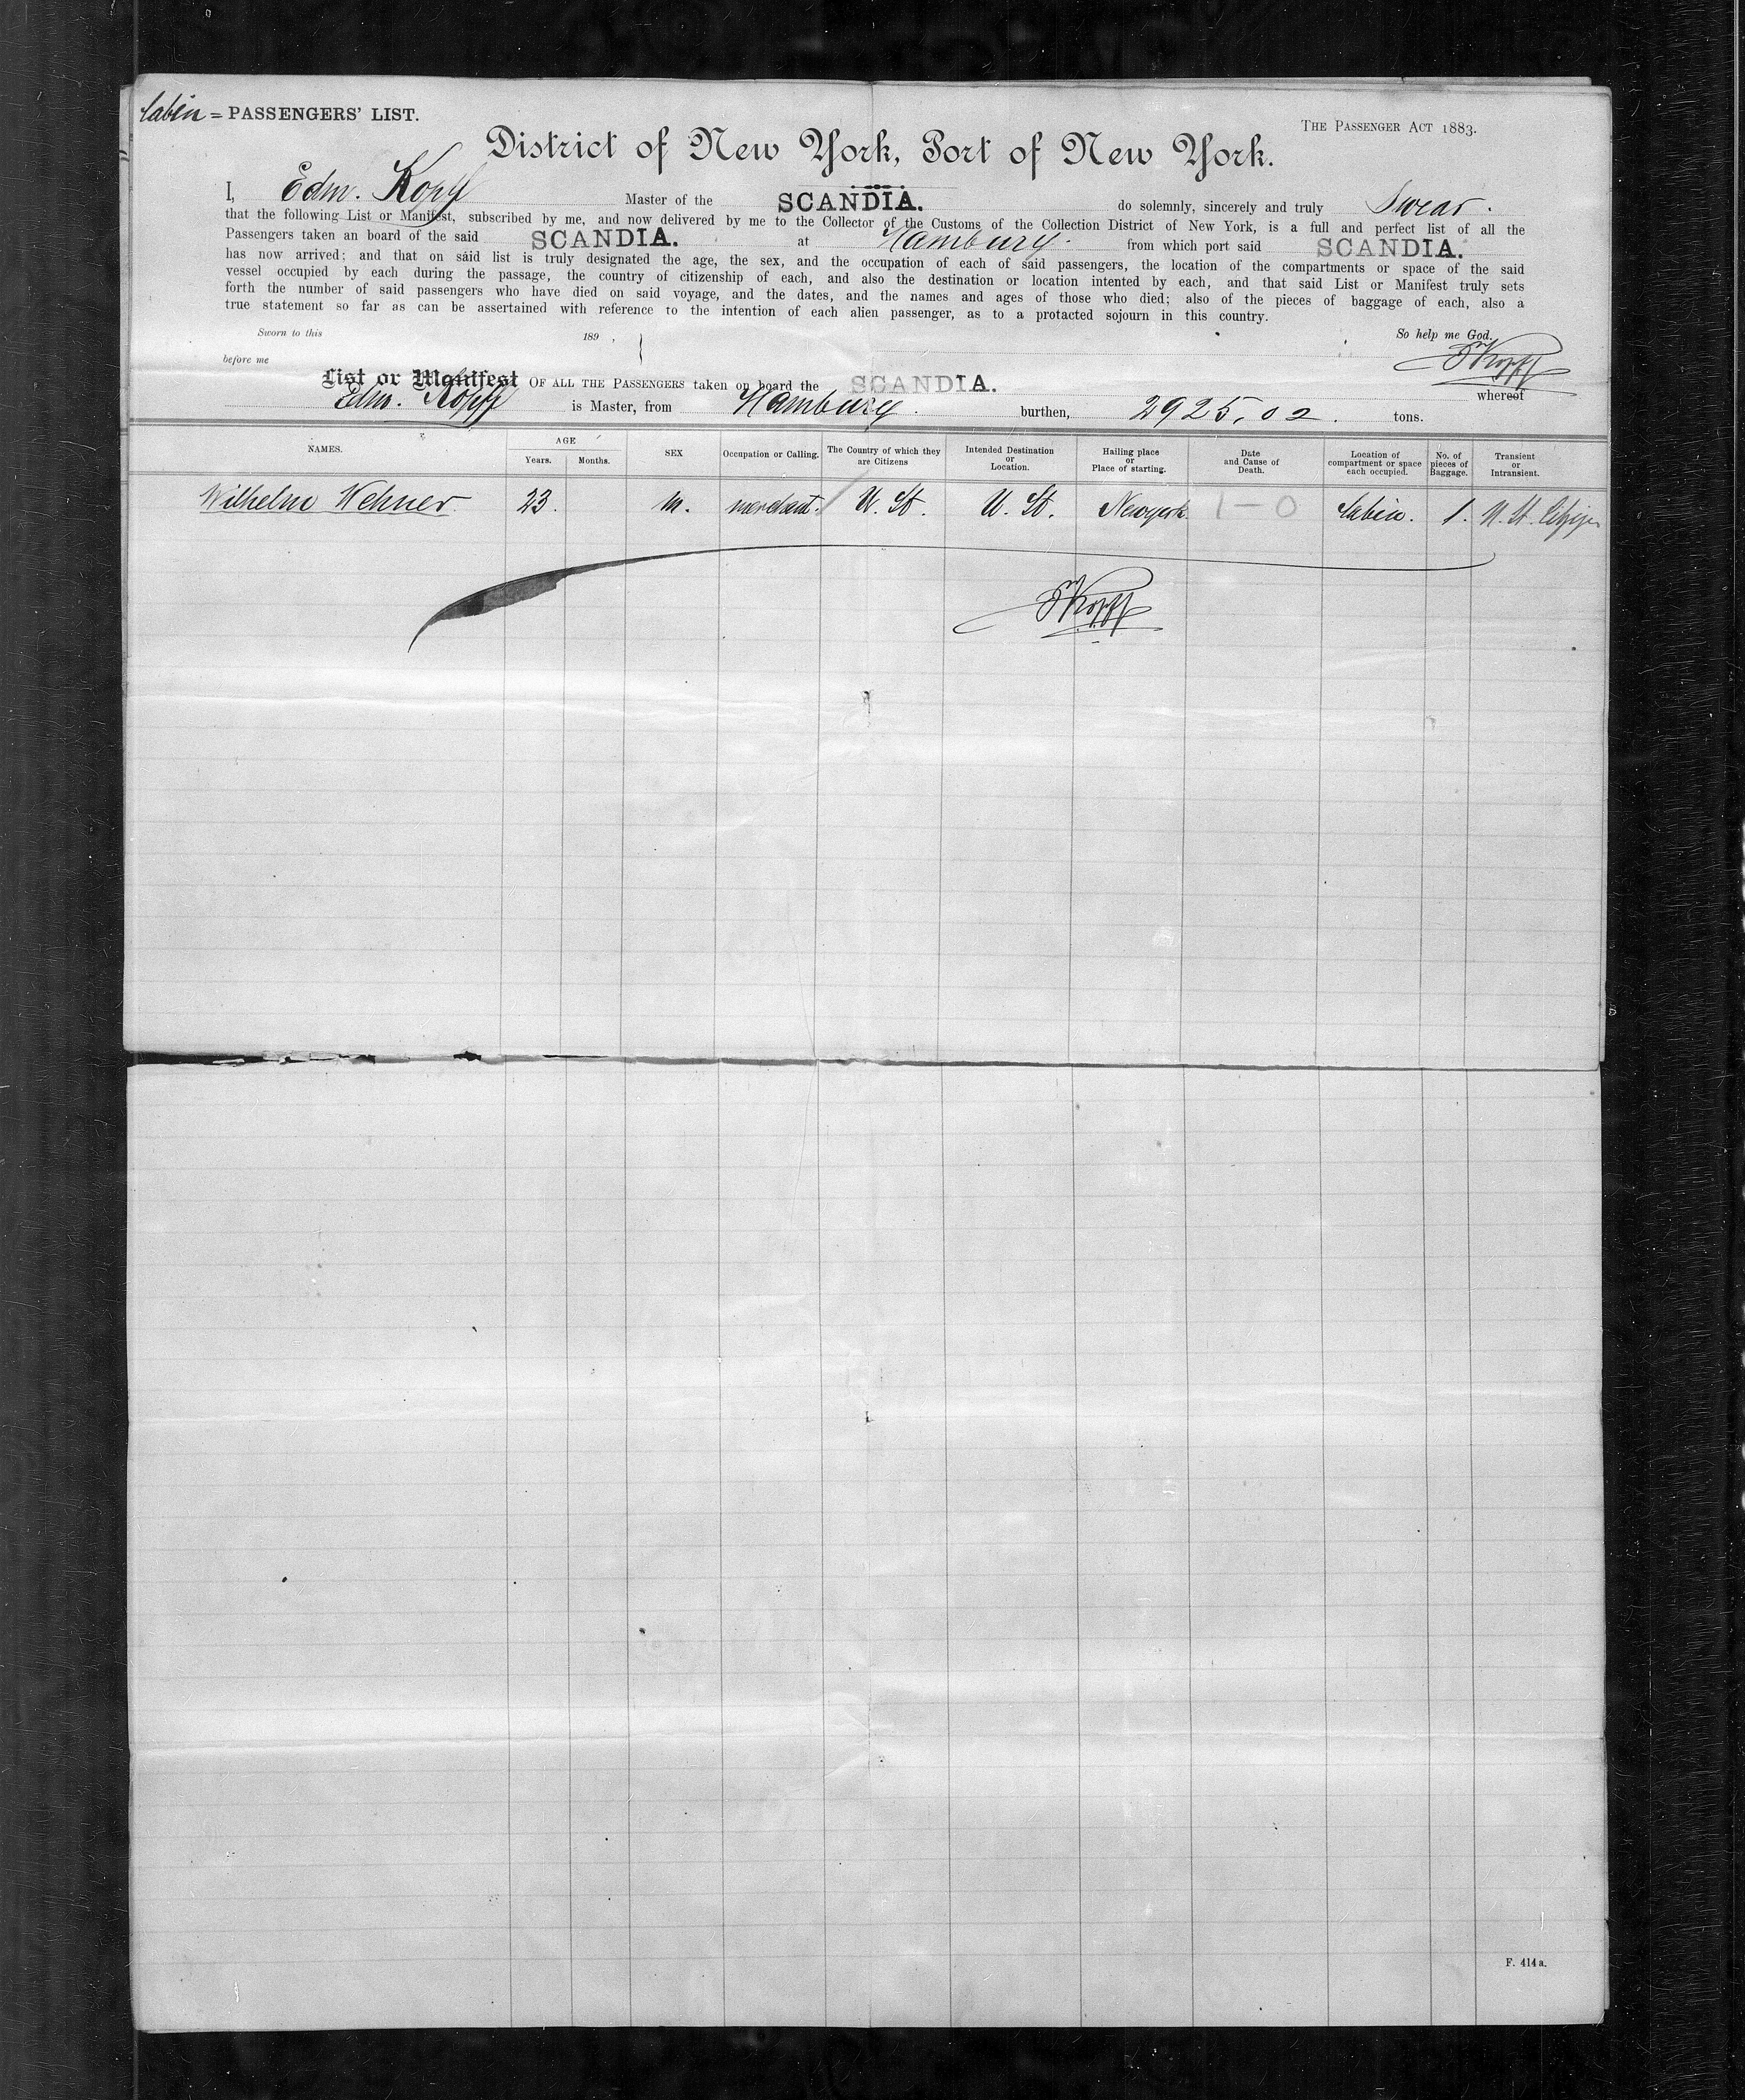 Cabin = PASSENGERS' LIST.
THE PASSENGER ACT 1883.
District of New York, Port of New York.
I, Edm. Kopff Master of the SCANDIA. do solemnly, sincerely and truly Swear.
that the following List or Manifest, subscribed by me, and now delivered by me to the Collector of the Customs of the Collection District of New York, is a full and perfect list of all the
Passengers taken an board of the said SCANDIA. at Hamburg. from which port said SCANDIA.
has now arrived; and that on said list is truly designated the age, the sex, and the occupation of each of said passengers, the location of the compartments or space of the said
vessel occupied by each during the passage, the country of citizenship of each, and also the destination or location intented by each, and that said List or Manifest truly sets
forth the number of said passengers who have died on said voyage, and the dates, and the names and ages of those who died; also of the pieces of baggage of each, also a
true statement so far as can be assertained with reference to the intention of each alien passenger, as to a protacted sojourn in this country.
Sworn to this 189 , So help me God.
before me EKopff
List or Manifest OF ALL THE PASSENGERS taken on board the SCANDIA. whereof
Edm. Kopff is Master, from Hamburg. burthen, 2925,02. tons.
NAMES. AGE Years. Months. SEX Occupation or Calling. The Country of which they are Citizens Intended Destination or Location. Hailing place or Place of starting. Date and Cause of Death. Location of compartment or space each occupied. No. of pieces of Baggage. Transient or Intransient.
Wilhelm Wehner. 23. m. merchant. U. St. U. St. Newyork. 1 – 0 Cabin. 1. U. St. Citizen
EKopff
F. 414a.